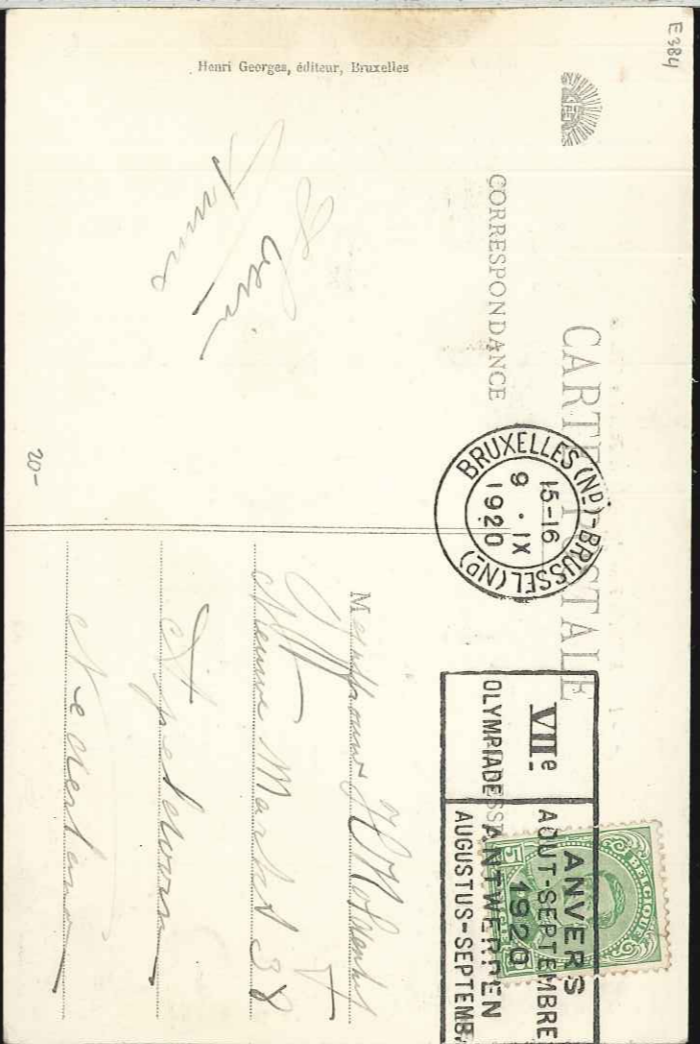 E384
Henri Georges, éditeur, Bruxelles
CARTE POSTALE
CORRESPONDANCE
BRUXELLES (ND)-BRUSSEL (ND)
15-16
9 . IX
1920
VIIe
OLYMPIADE
ANVERS
AOUT-SEPTEMBRE
1920
ANTWERPEN
AUGUSTUS-SEPTEMB
BELGIQUE
5
Mejuffrouw
Nieuwe Markt 38
Apeldoorn
Nederland
20-